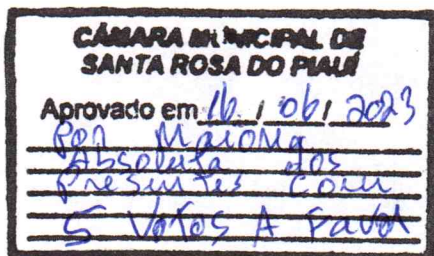 CÂMARA MUNICIPAL DE
SANTA ROSA DO PIAUÍ
Aprovado em 16 / 06 / 2023
Por Maioria
Absoluta dos
Presentes com
5 Votos A Favor